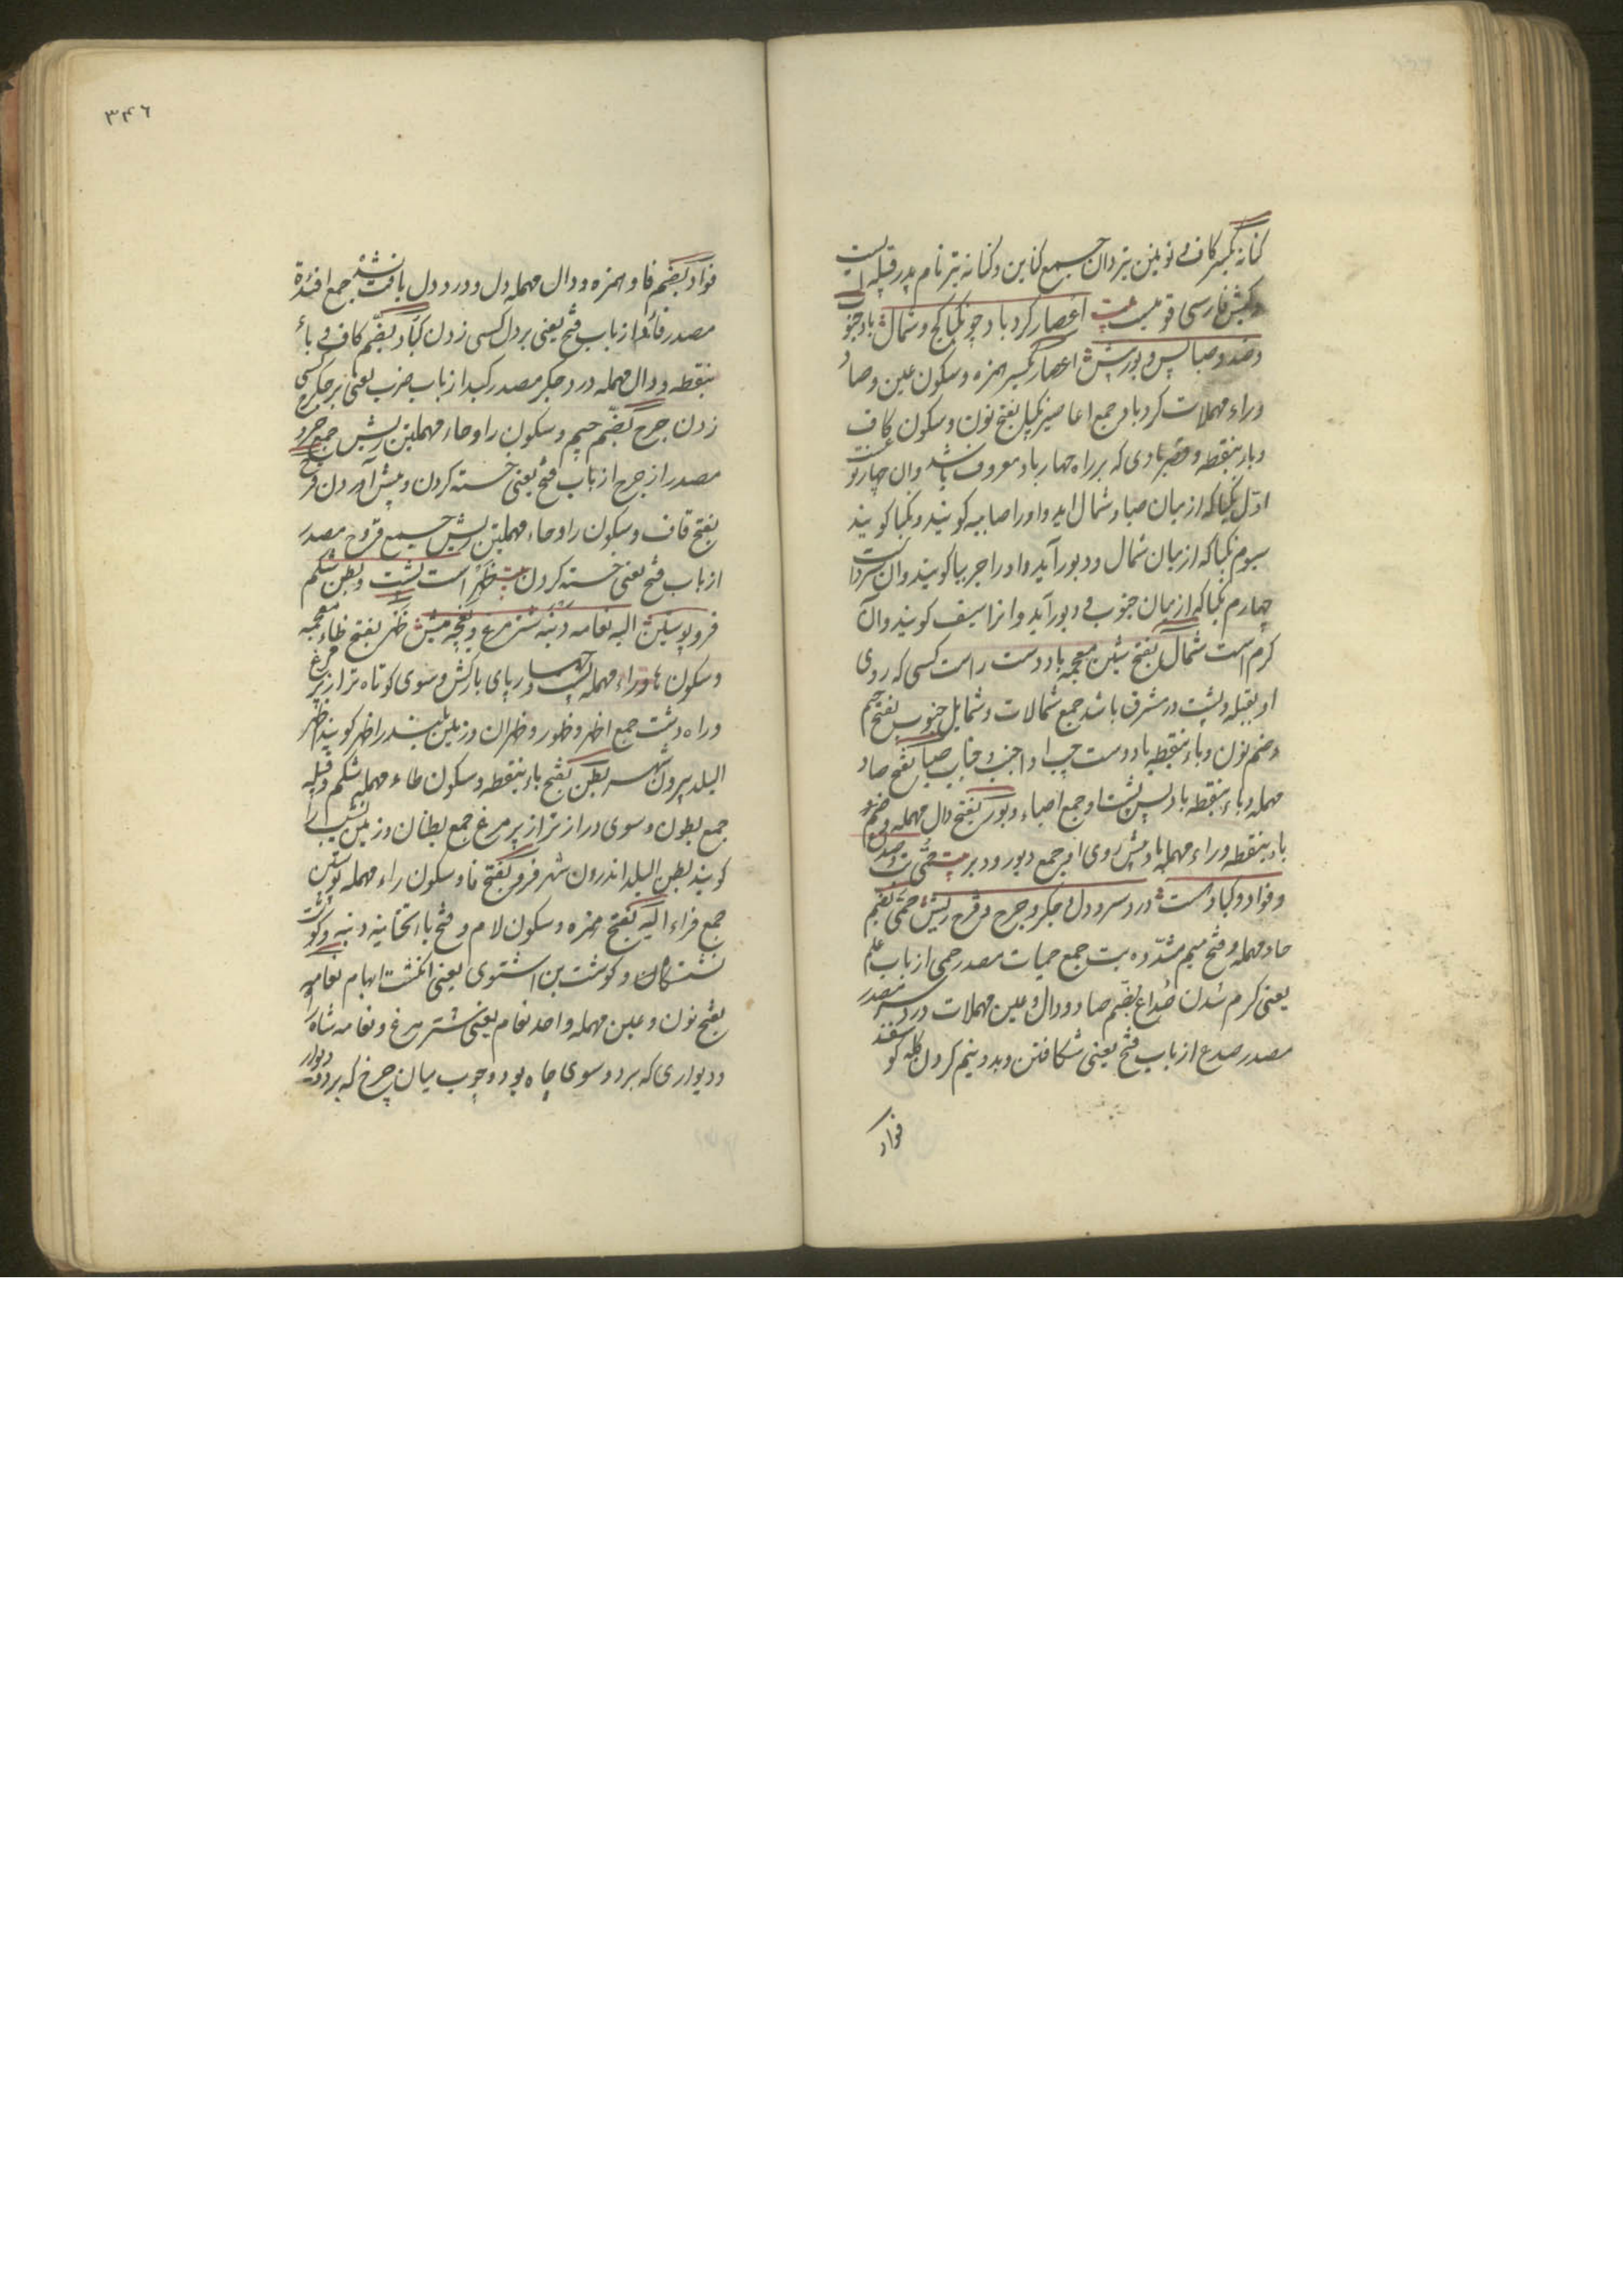 کنانه بکسر کاف و نونین تیردان جمع کناین و کنانه نیز نام پدر قبیله ایست
و کیش فارسی قومیست بیت اعصار کردباد چو نکبا کج و شمال باد جنو
ضد و صبا پس و پورش اعصار بکسر همزه و سکون عین و صاد
و راء مهملات کردباد جمع اعاصیر نکبا بفتح نون و سکون کاف
و باء بنقطه و قصر بادی که بر راه چهار باد معروف باشد و ان چهار نوعست
اول نکبا که از میان صبا و شمال اید و او را صابیه کویند و نکبا کویند
سیوم نکبا که از میان شمال و دبور آید و او را جربیا کویند و ان سرد است
چهارم نکبا که از میان جنوب و دبور آید و انرا هیف کویند و آن
کرم است شمال بفتح شین معجمه باد دست راست کسی که روی
او بقبله و پشت در مشرق باشد جمع شمالات و شمایل جنوب بفتح جیم
و ضم نون و باء بنقطه باد دست چپ او اجنب و جناب صبا بفتح صاد
مهمله و باء بنقطه باد پس پشت او جمع اصباء دبور بفتح دال مهمله و ضم
باء بنقطه و راء مهمله باد پیش روی او جمع دبور و دبر بیت حمی تب و صداع
و فواد و کباد است درد سر و دل و جکر و جرح و قرح ریش حمی بضم
حاء مهمله و فتح میم مشدده تب جمع حمیات مصدر حمی از باب علم
یعنی کرم شدن صداع بضم صاد و دال و عین مهملات درد سر مصدر
مصدر صدع از باب فتح یعنی شکافتن و بدو نیم کردن کله کوسفند
فواد
۳۴۶
فواد بضم فا و همزه و دال مهمله دل و درد دل یافت نشد جمع افئدة
مصدر فأد از باب فتح یعنی بر دل کسی زدن کباد بضم کاف و باء
بنقطه و دال مهمله درد جکر مصدر کبد از باب ضرب یعنی بر جکر کسی
زدن جرح بضم جیم و سکون را و حاء مهملتین ریش جمع جروح
مصدر از جرح از باب فتح یعنی خسته کردن و پیش آوردن قرح
بفتح قاف و سکون را و حاء مهملتین ریش جمع قروح مصدر
از باب فتح یعنی خسته کردن بیت ظهر است پشت و بطن شکم
فرو پوستین الیه نعامه دنبه شتر مرغ و نعجه میش ظهر بفتح ظاء معجمه
و سکون ها و راء مهمله پشت و چهار پای بارکش و سوی کوتاه تر از پر مرغ
و راه دشت جمع اظهر و ظهور و ظهران و زمین بلند را ظهر کویند ظهر
البلد بیرون شهر بطن بفتح باء بنقطه و سکون طاء مهمله شکم و قبیله
جمع بطون و سوی دراز تر از پر مرغ جمع بطنان و زمین نشیب را
کویند بطن البلد اندرون شهر فرو بفتح فا و سکون راء مهمله پوستین
جمع فراء الیه بفتح همزه و سکون لام و فتح یا تحتانیه دنبه و کوشت
نشستکاه و کوشت بن اشتوی یعنی انکشت ابهام نعامه
بفتح نون و عین مهمله واحد نعام یعنی شتر مرغ و نعامه شاه راه
و دیواری که بر دو سوی چاه بود و چوب میان چرخ که بر دو دیوار